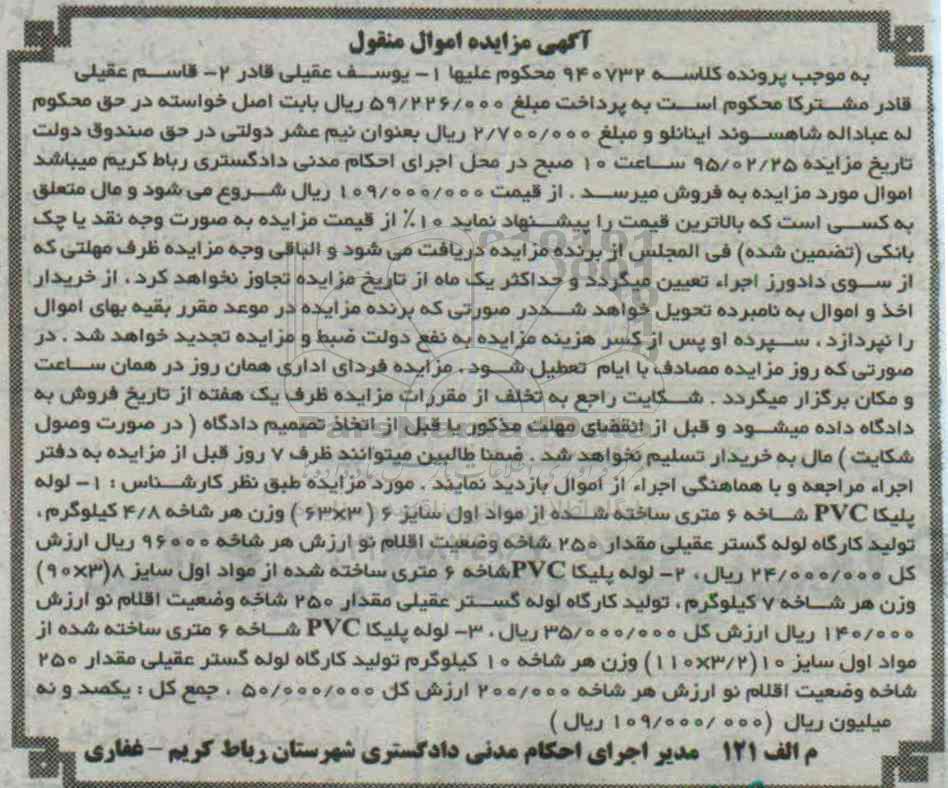 آگهی مزایده اموال منقول
به موجب پرونده کلاسه ۹۴۰۷۳۲ محکوم علیها ۱- یوسف عقیلی قادر ۲- قاسم عقیلی
قادر مشترکا محکوم است به پرداخت مبلغ ۵۹/۲۲۶/۰۰۰ ریال بابت اصل خواسته در حق محکوم
له عباداله شاهسوند اینانلو و مبلغ ۲/۷۰۰/۰۰۰ ریال بعنوان نیم عشر دولتی در حق صندوق دولت
تاریخ مزایده ۹۵/۰۲/۲۵ ساعت ۱۰ صبح در محل اجرای احکام مدنی دادگستری رباط کریم میباشد
اموال مورد مزایده به فروش میرسد . از قیمت ۱۰۹/۰۰۰/۰۰۰ ریال شروع می شود و مال متعلق
به کسی است که بالاترین قیمت را پیشنهاد نماید ۱۰٪ از قیمت مزایده به صورت وجه نقد یا چک
بانکی (تضمین شده) فی المجلس از برنده مزایده دریافت می شود و الباقی وجه مزایده ظرف مهلتی که
از سوی دادورز اجراء تعیین میگردد و حداکثر یک ماه از تاریخ مزایده تجاوز نخواهد کرد ، از خریدار
اخذ و اموال به نامبرده تحویل خواهد شددر صورتی که برنده مزایده در موعد مقرر بقیه بهای اموال
را نپردازد ، سپرده او پس از کسر هزینه مزایده به نفع دولت ضبط و مزایده تجدید خواهد شد . در
صورتی که روز مزایده مصادف با ایام تعطیل شود ، مزایده فردای اداری همان روز در همان ساعت
و مکان برگزار میگردد . شکایت راجع به تخلف از مقررات مزایده ظرف یک هفته از تاریخ فروش به
دادگاه داده میشود و قبل از انقضای مهلت مذکور یا قبل از اتخاذ تصمیم دادگاه ( در صورت وصول
شکایت ) مال به خریدار تسلیم نخواهد شد . ضمنا طالبین میتوانند ظرف ۷ روز قبل از مزایده به دفتر
اجراء مراجعه و با هماهنگی اجراء از اموال بازدید نمایند . مورد مزایده طبق نظر کارشناس : ۱- لوله
پلیکا PVC شاخه ۶ متری ساخته شده از مواد اول سایز ۶ ( ۳×۶۳) وزن هر شاخه ۴/۸ کیلوگرم ،
تولید کارگاه لوله گستر عقیلی مقدار ۲۵۰ شاخه وضعیت اقلام نو ارزش هر شاخه ۹۶۰۰۰ ریال ارزش
کل ۲۴/۰۰۰/۰۰۰ ریال ، ۲- لوله پلیکا PVCشاخه ۶ متری ساخته شده از مواد اول سایز ۸(۳×۹۰)
وزن هر شاخه ۷ کیلوگرم ، تولید کارگاه لوله گستر عقیلی مقدار ۲۵۰ شاخه وضعیت اقلام نو ارزش
۱۴۰/۰۰۰ ریال ارزش کل ۳۵/۰۰۰/۰۰۰ ریال ، ۳- لوله پلیکا PVC شاخه ۶ متری ساخته شده از
مواد اول سایز ۱۰(۳/۲×۱۱۰) وزن هر شاخه ۱۰ کیلوگرم تولید کارگاه لوله گستر عقیلی مقدار ۲۵۰
شاخه وضعیت اقلام نو ارزش هر شاخه ۲۰۰/۰۰۰ ارزش کل ۵۰/۰۰۰/۰۰۰ ، جمع کل : یکصد و نه
میلیون ریال (۱۰۹/۰۰۰/۰۰۰ ریال )
م الف ۱۲۱ مدیر اجرای احکام مدنی دادگستری شهرستان رباط کریم - غفاری